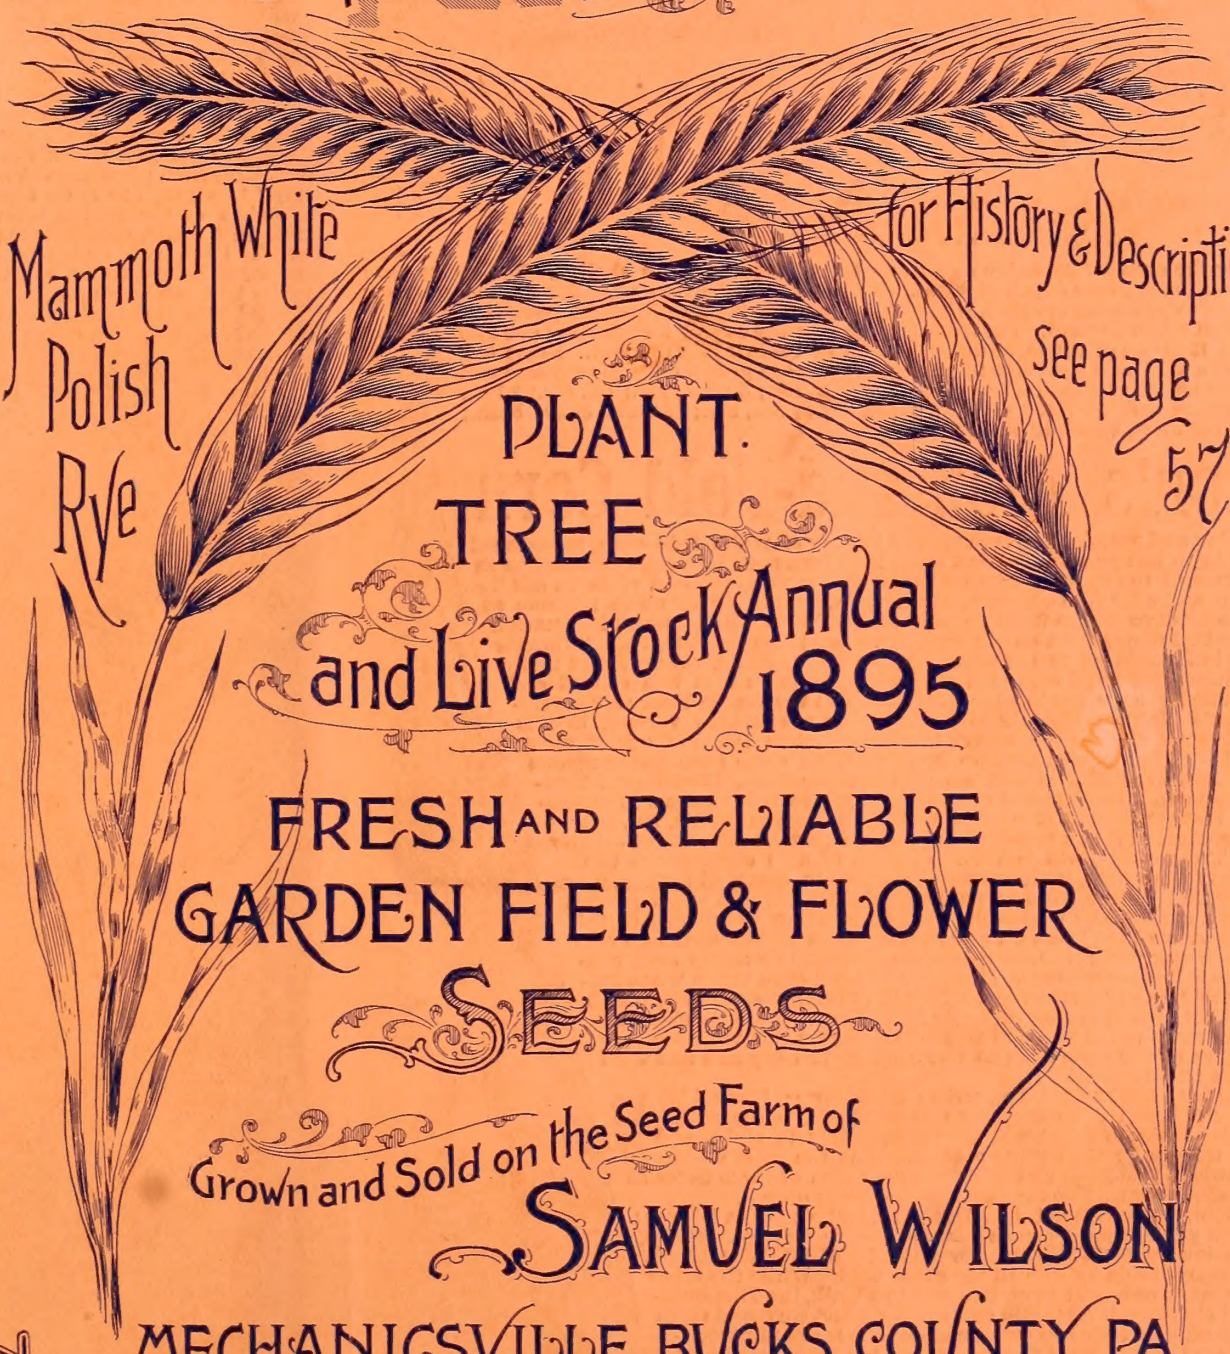 Mammoth White
Polish
Rye
for History & Descripti
see page
57
PLANT.
TREE
and Live Stock Annual
1895
FRESH AND RELIABLE
GARDEN FIELD & FLOWER
SEEDS
Grown and Sold on the Seed Farm of
SAMUEL WILSON
MECHANICSVILLE BUCKS COUNTY PA